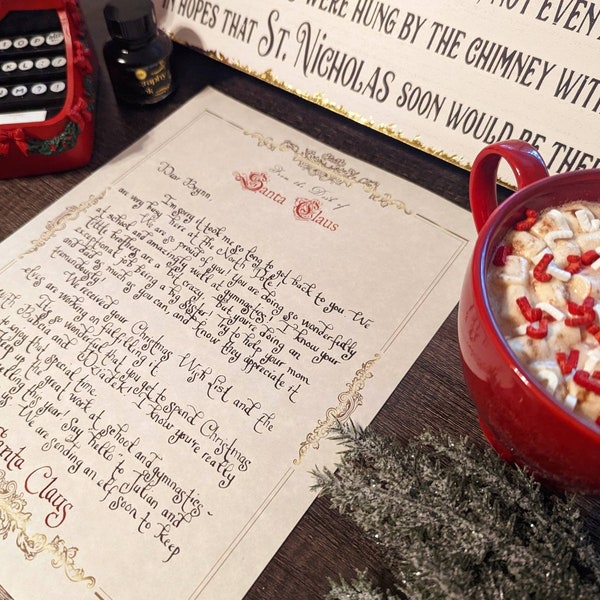 NOT EVEN
WERE HUNG BY THE CHIMNEY WITH
IN HOPES THAT ST. NICHOLAS SOON WOULD BE THERE
From the Desk of
Santa Claus
Dear Brynn,
I'm sorry it took me so long to get back to you. We
are very busy here at the North Pole!
We are so proud of you! You are doing so wonderfully
at school and amazingly well at gymnastics! I know your
little brothers are a bit crazy, but you're doing an
exceptional job being a big sister! Try to help your mom
and dad as much as you can, and know they appreciate it
tremendously!
We received your Christmas Wish List and the
elves are working on fulfilling it.
It's so wonderful that you get to spend Christmas
with and I know you're really
enjoy that special time.
up the great work at school and gymnastics -
this year! Say "hello" to Julian and
us. We are sending an elf soon to keep
Santa Claus